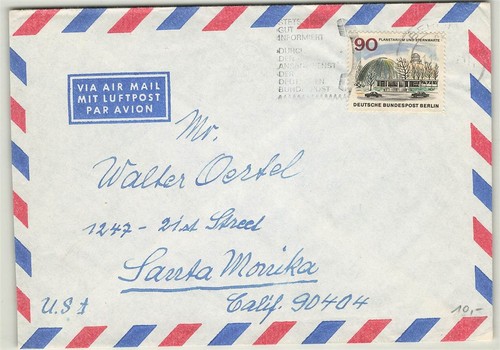 STETS
GUT
INFORMIERT
DURCH
DEN
ANSAGEDIENST
DER
DEUTSCHEN
BUNDESPOST
90
PLANETARIUM UND STERNWARTE
DEUTSCHE BUNDESPOST BERLIN
VIA AIR MAIL
MIT LUFTPOST
PAR AVION
Mr.
Walter Oertel
1247 - 21st Street
Santa Monika
Calif. 90404
USA
10,-